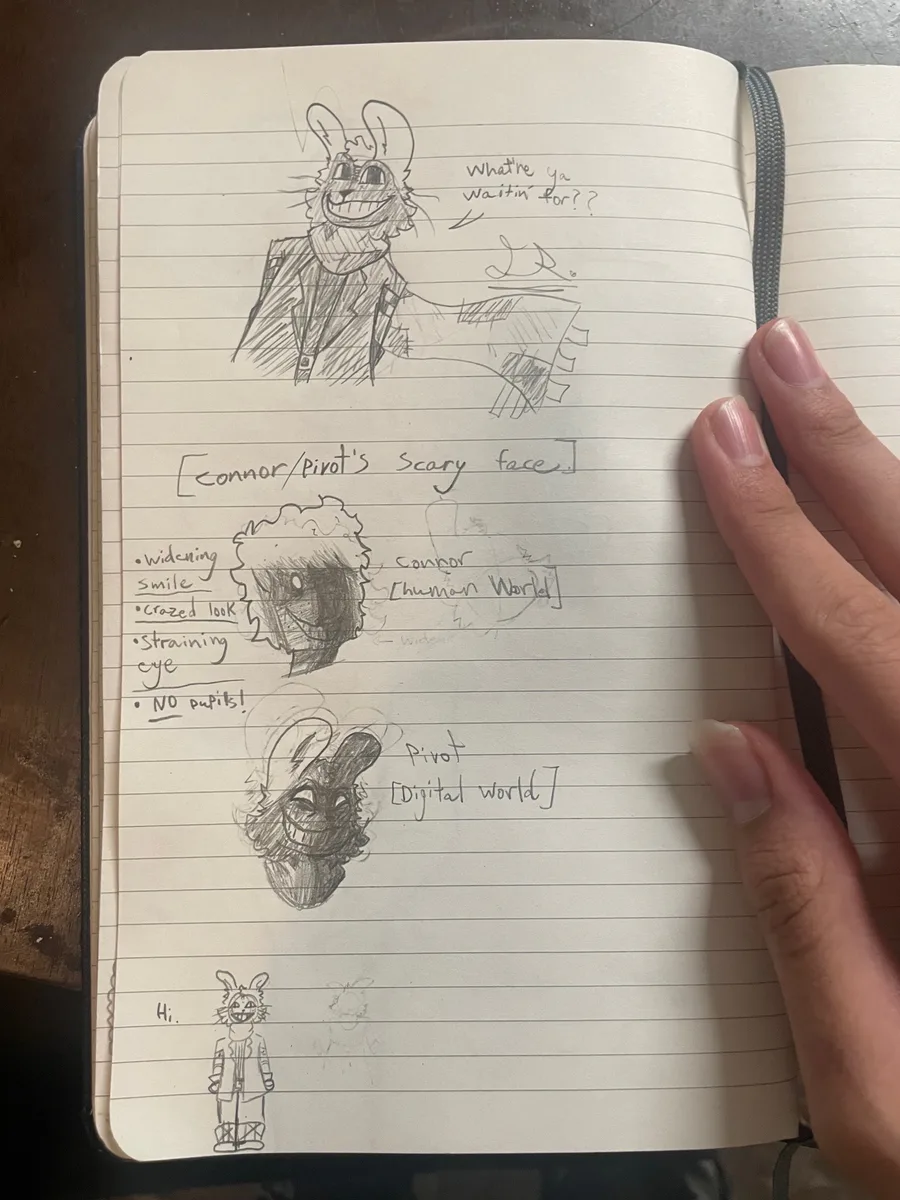 What're ya
waitin' for??
J.R.
[Connor/Pivot's Scary face.]
• widening
smile
• crazed look
• straining
eye
• NO pupils!
Connor
[human World]
Pivot
[Digital world]
Hi.